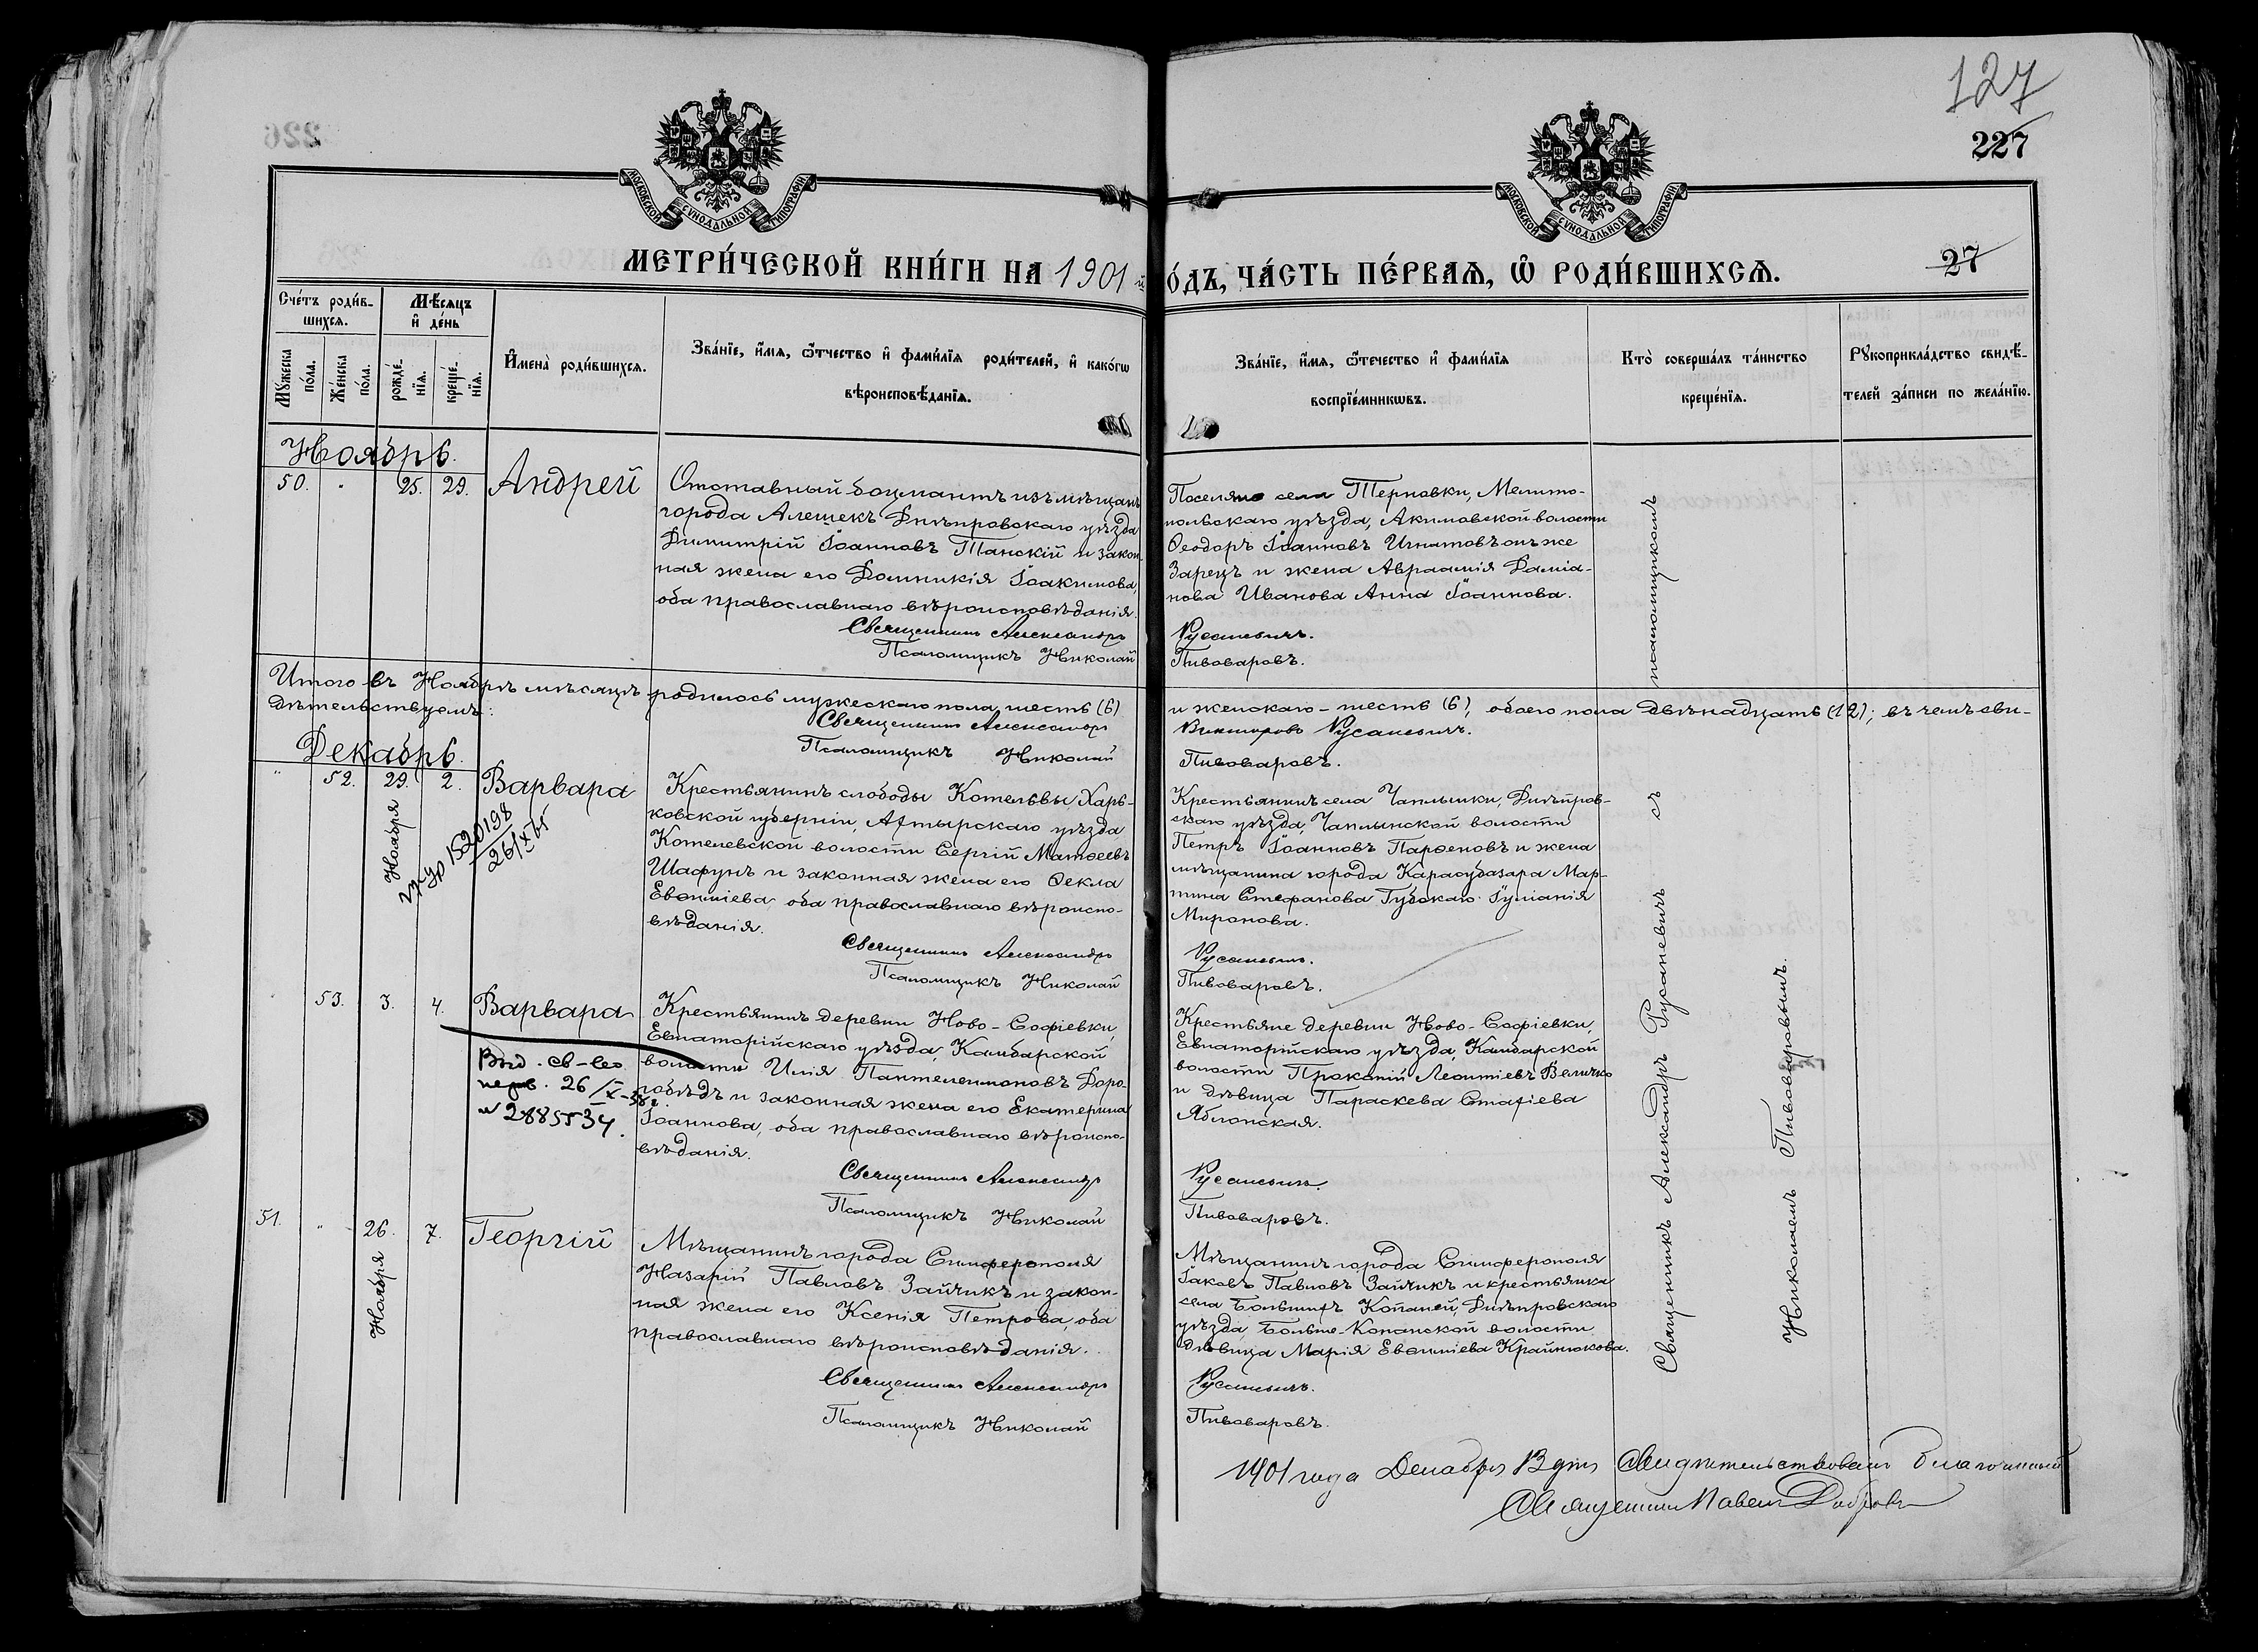 127
227
МОСКОВСКОЙ СѴНОДАЛЬНОЙ ТИПОГРАФІИ
МОСКОВСКОЙ СѴНОДАЛЬНОЙ ТИПОГРАФІИ
МЕТРИ́ЧЕСКОЙ КНИ́ГИ НА 1901 й
О́ДЪ, ЧА́СТЬ ПЕ́РВАѦ, Ѡ҆ РОДИ́ВШИХСѦ.
27
Сче́тъ роди́в-
шихсѧ.
Мѣ́сѧцъ
и҆ де́нь
Мꙋ́жеска
по́ла.
Же́нска
по́ла.
рожде́-
нїѧ.
креще́-
нїѧ.
И҆мена̀ роди́вшихсѧ.
Зва́нїе, и҆́мѧ, ѻ҆́тчество и҆ фами́лїѧ роди́телей, и҆ како́гѡ
вѣроисповѣ́данїѧ.
Зва́нїе, и҆́мѧ, ѻ҆́течество и҆ фами́лїѧ
воспрїе́мникѡвъ.
Кто̀ соверша́лъ та́инство
креще́нїѧ.
Рꙋкоприкла́дство свидѣ́-
телей за́писи по жела́нїю.
Ноябрь.
50. " 25. 29. Андрей
Отставный боцманъ изъ мѣщанъ
города Алешекъ Днѣпровскаго уѣзда
Димитрій Іоанновъ Танскій и закон
ная жена его Домникія Іоакимова,
оба православнаго вѣроисповѣданія.
Священникъ Александръ
Псаломщикъ Николай
Поселяне села Терновки, Мелито-
польскаго уѣзда, Акимовской волости
Ѳеодоръ Іоанновъ Игнатовъ онъ же
Зарецъ и жена Авраамія Даміа-
нова Иванова Анна Іоаннова.
Русаневичъ.
Пивоваровъ.
Итого въ Ноябрѣ мѣсяцѣ родилось мужескаго пола шесть (6)
и женскаго – шесть (6), обоего пола двѣнадцать (12); въ чемъ сви-
дѣтельствуемъ:
Священникъ Александръ
Викторовъ Русаневичъ.
Псаломщикъ Николай
Пивоваровъ.
Декабрь.
" 52. 29. 2. Варвара
Ноября
1520198
Крестьянинъ слободы Котельвы Харь-
ковской губерніи, Ахтырскаго уѣзда
Котелевской волости Сергій Матѳеевъ
Шафунъ и законная жена его Ѳекла
Евѳиміева, оба православнаго вѣроиспо-
вѣданія.
Священникъ Александръ
Псаломщикъ Николай
Крестьянинъ села Чаплынки, Днѣпров-
скаго уѣзда, Чаплынской волости
Петръ Іоанновъ Парѳеновъ и жена
мѣщанина города Карасубазара Мар-
тина Стефанова Губскаго Іуліанія
Миронова.
Русаневичъ.
Пивоваровъ.
53. 3. 4. Варвара
Выд. св-во
26/X-38г
№ 2885534.
Крестьянинъ деревни Ново-Софіевки,
Евпаторійскаго уѣзда, Камбарской
волости Илія Пантелеимоновъ Доро-
гобѣдъ и законная жена его Екатерина
Іоаннова, оба православнаго вѣроиспо-
вѣданія.
Священникъ Александръ
Псаломщикъ Николай
Крестьяне деревни Ново-Софіевки,
Евпаторійскаго уѣзда, Камбарской
волости Прокопій Леонтіевъ Величко
и дѣвица Параскева Стахіева
Яблонская.
Русаневичъ.
Пивоваровъ.
51. " 26. 7. Георгій
Ноября
Мѣщанинъ города Симферополя
Назарій Павловъ Зайчикъ и закон-
ная жена его Ксенія Петрова, оба
православнаго вѣроисповѣданія.
Священникъ Александръ
Псаломщикъ Николай
Мѣщанинъ города Симферополя
Іаковъ Павловъ Зайчикъ и крестьянка
села Большихъ Копаней, Днѣпровскаго
уѣзда, Больше-Копанской волости
дѣвица Марія Евѳиміева Крайнюкова.
Русаневичъ.
Пивоваровъ.
Священникъ Александръ Русаневичъ съ псаломщикомъ
Николаемъ Пивоваровымъ.
1901 года Декабря дня Свидѣтельствовалъ благочинный
Священникъ Павелъ